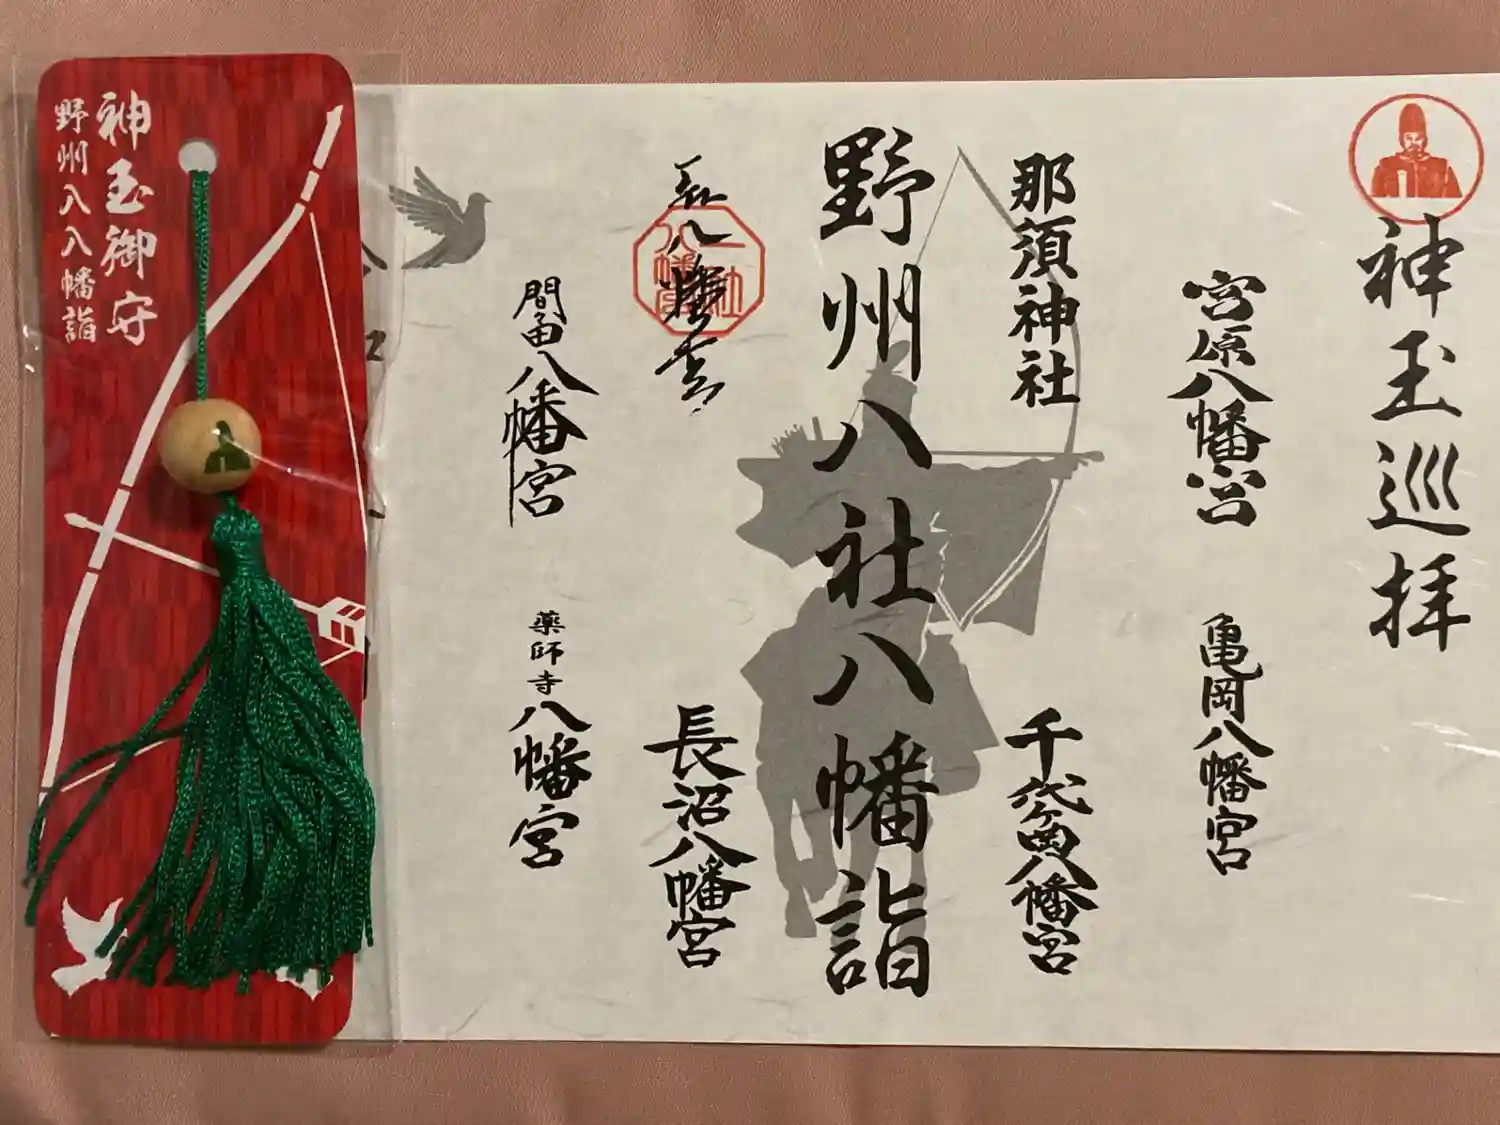 神玉巡拝
宮原八幡宮
亀岡八幡宮
那須神社
千代ヶ岡八幡宮
野州八社八幡詣
八幡宮
長沼八幡宮
間々田八幡宮
薬師寺八幡宮
神玉御守
野州八八幡詣